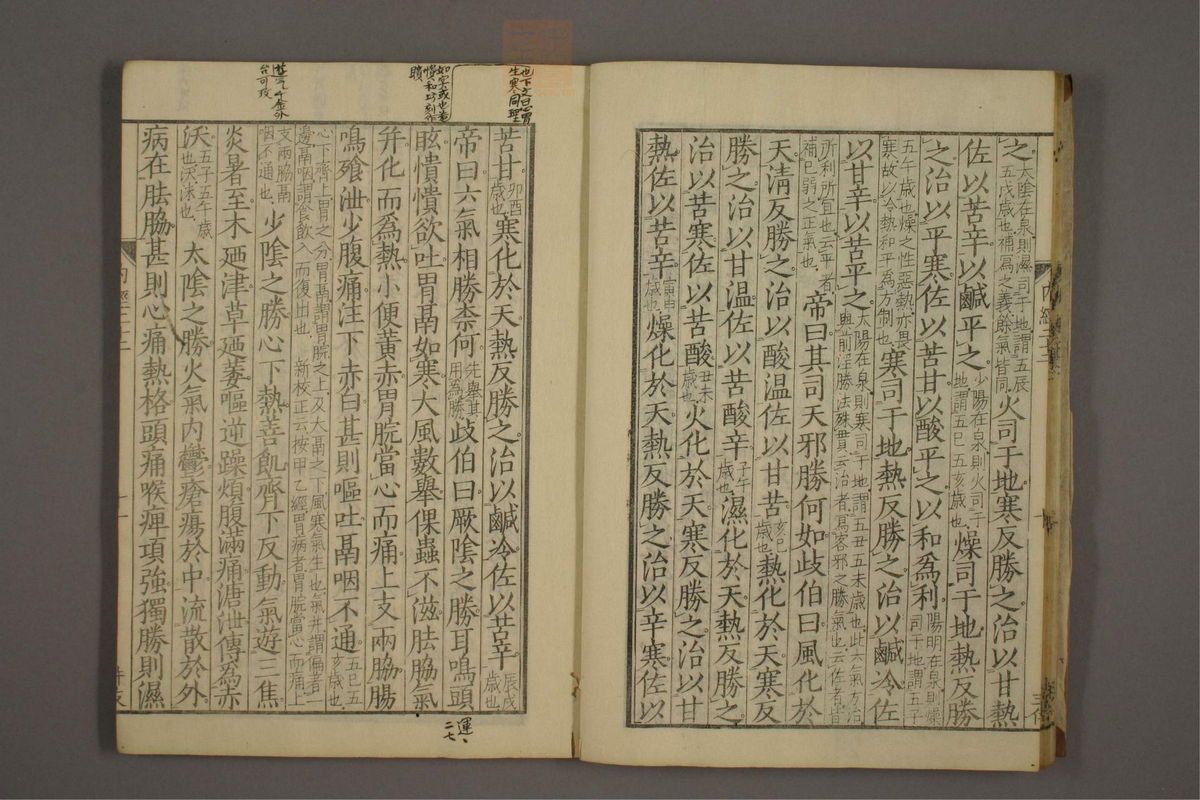 之太陰在泉則濕司于地謂五辰五戌歲也補寫之義餘氣皆同火司于地寒反勝之治以甘熱
佐以苦辛以鹹平之少陽在泉則火司于地謂五巳五亥歲也燥司于地熱反勝
之治以平寒佐以苦甘以酸平之以和爲利陽明在泉則燥司于地謂五子
五午歲也燥之性惡熱亦畏寒故以冷熱和平爲方制也寒司于地熱反勝之治以鹹冷佐
以甘辛以苦平之太陽在泉則寒司于地謂五丑五未歲也此六氣方治與前淫勝法殊貫云治者寫客邪之勝氣也云佐者皆
所利所宜也云平者補已弱之正氣也帝曰其司天邪勝何如歧伯曰風化於
天清反勝之治以酸溫佐以甘苦亥巳歲也熱化於天寒反
勝之治以甘溫佐以苦酸辛子午歲也濕化於天熱反勝之
治以苦寒佐以苦酸丑未歲也火化於天寒反勝之治以甘
熱佐以苦辛寅申歲也燥化於天熱反勝之治以辛寒佐以
苦甘卯酉歲也寒化於天熱反勝之治以鹹冷佐以苦辛辰戌歲也
帝曰六氣相勝柰何先舉其用爲勝歧伯曰厥陰之勝耳鳴頭
眩憒憒欲吐胃鬲如寒大風數舉倮蟲不滋胠脇氣
并化而爲熱小便黃赤胃脘當心而痛上支兩脇腸
鳴飱泄少腹痛注下赤白甚則嘔吐鬲咽不通五巳五亥歲也
心下齊上胃之分胃鬲謂胃脘之上及大鬲之下風寒氣生也氣并謂偏著一
邊鬲咽謂食飲入而復出也 新校正云按甲乙經胃病者胃脘當心而痛上
支兩脇鬲咽不通也少陰之勝心下熱善飢齊下反動氣遊三焦
炎暑至木廼津草廼萎嘔逆躁煩腹滿痛溏泄傳爲赤
沃五子五午歲也沃沫也太陰之勝火氣內鬱瘡瘍於中流散於外
病在胠脇甚則心痛熱格頭痛喉痺項強獨勝則濕
也下文曰胃
生寒同理
運
二七